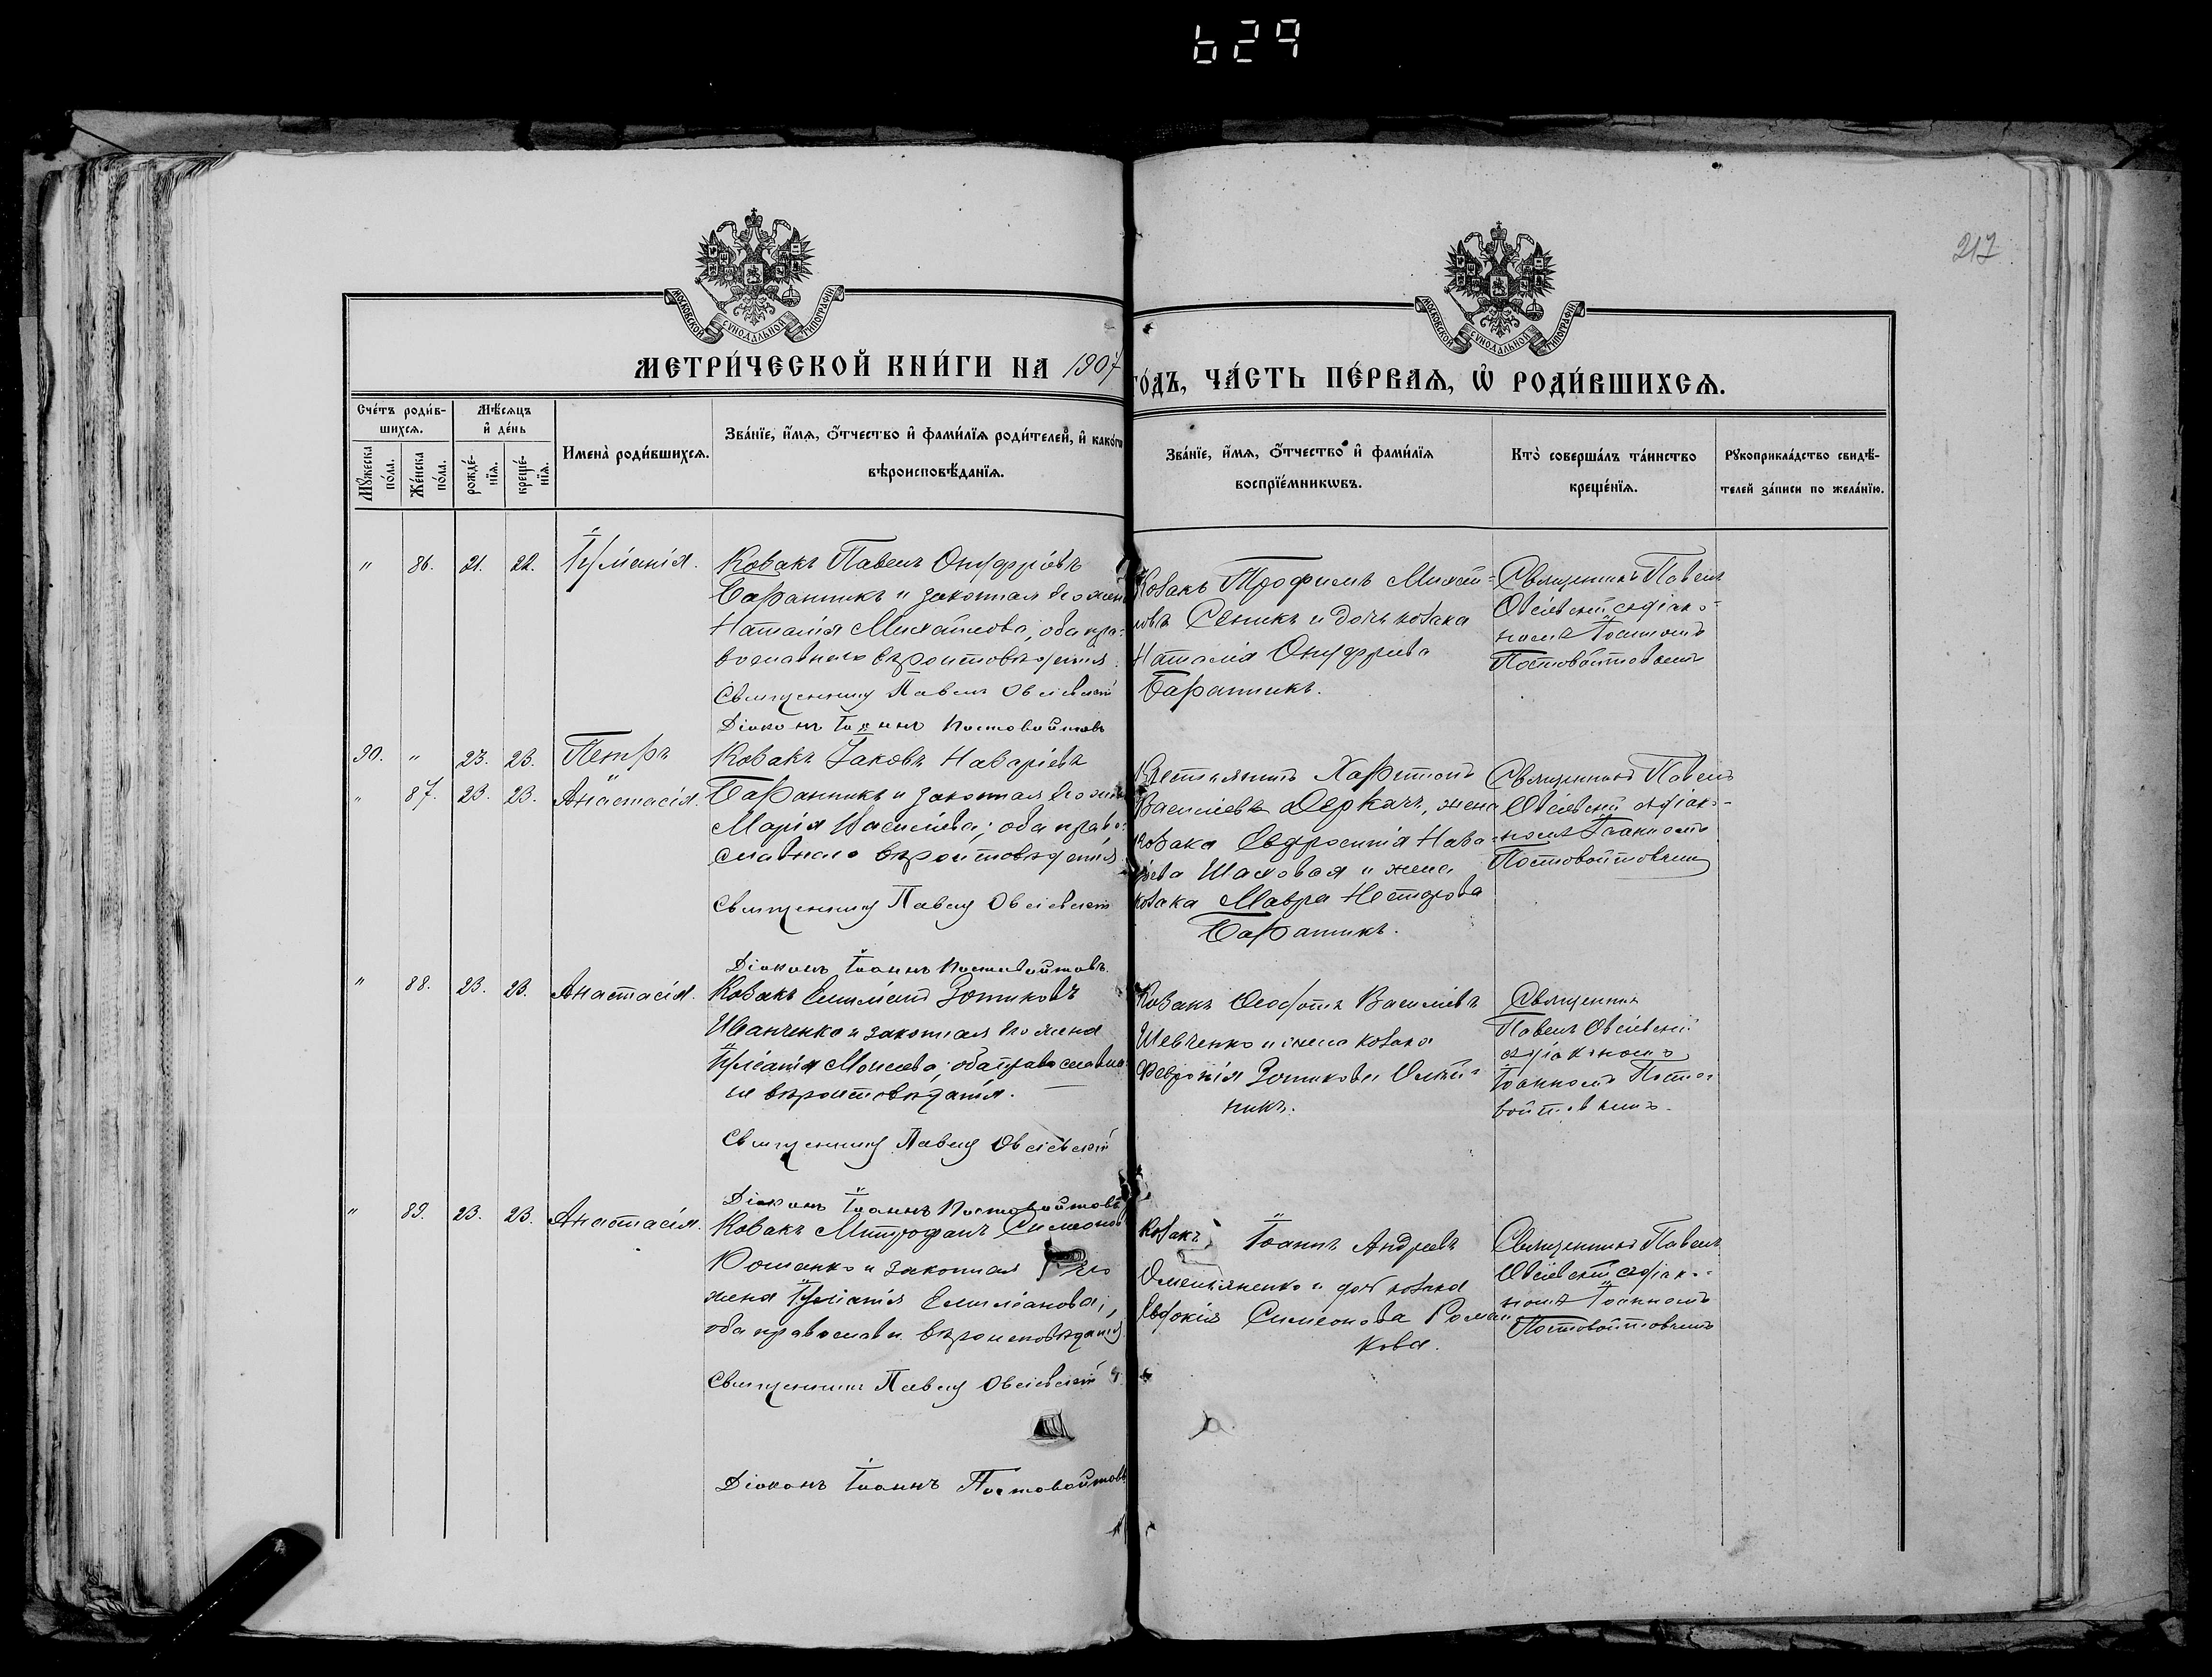 629
217
МОСКОВСКОЙ СУНОДАЛЬНОЙ ТИПОГРАФІИ
МОСКОВСКОЙ СУНОДАЛЬНОЙ ТИПОГРАФІИ
МЕТРИ́ЧЕСКОЙ КНИ́ГИ НА 1907
ГО́ДЪ, ЧА́СТЬ ПЕ́РВАѦ, Ѡ РОДИ́ВШИХСѦ.
Сче́тъ роди́в-
шихсѧ.
Мꙋ́жеска по́ла.
Же́нска по́ла.
Мѣ́сѧцъ и де́нь
рожде́-нїѧ.
креще́-нїѧ.
Имена̀ роди́вшихсѧ.
Зва́нїе, и́мѧ, ѻ́тчество и фами́лїѧ роди́телей, и како́гѡ
вѣроисповѣ́данїѧ.
Зва́нїе, и́мѧ, ѻ́тчество и фами́лїѧ
воспрїе́мникѡвъ.
Кто̀ соверша́лъ та́инство
креще́нїѧ.
Рꙋкоприкла́дство свидѣ́-
телей за́писи по жела́нїю.
" 86. 21. 22. Іуліанія.
Козакъ Павелъ Онуфріевъ
Баранникъ и законная его жена
Наталія Михайлова, оба пра-
вославнаго вѣроисповѣданія.
Священникъ Павелъ Овсіевскій
Діаконъ Іоаннъ Постовойтовъ
Козакъ Трофимъ Михай-
ловъ Сеникъ и дочь козака
Наталія Онуфріева
Баранникъ.
Священникъ Павелъ
Овсіевскій съ діако-
номъ Іоанномъ
Постовойтовымъ
30. " 23. 23. Петръ
" 87. 23. 23. Анастасія.
Козакъ Іаковъ Назаріевъ
Баранникъ и законная его жена
Марія Васильева; оба право-
славнаго вѣроисповѣданія
Священникъ Павелъ Овсіевскій
Діаконъ Іоаннъ Постовойтовъ.
Крестьянинъ Харитонъ
Васильевъ Деркачъ, жена
козака Евфросинія Наза-
ріева Шаховая и жена
козака Мавра Несторова
Баранникъ.
Священникъ Павелъ
Овсіевскій съ діако-
номъ Іоанномъ
Постовойтовымъ
" 88. 23. 23. Анастасія.
Козакъ Емиліанъ Зотиковъ
Иванченко и законная его жена
Іуліанія Моисеева; оба православна-
го вѣроисповѣданія.
Священникъ Павелъ Овсіевскій
Діаконъ Іоаннъ Постовойтовъ
Козакъ Ѳеофотъ Васильевъ
Шевченко и жена козака
Февронія Зотикова Олій-
никъ.
Священникъ
Павелъ Овсіевскій
съ діакономъ
Іоанномъ Посто-
войтовымъ.
" 89. 23. 23. Анастасія.
Козакъ Митрофанъ Симеоновъ
Романко и законная его
жена Іуліанія Емиліанова;
оба православн. вѣроисповѣданія
Священникъ Павелъ Овсіевскій
Діаконъ Іоаннъ Постовойтовъ
Козакъ Іоаннъ Андреевъ
Омельяненко и дочь козака
Евдокія Симеонова Роман-
кова.
Священникъ Павелъ
Овсіевскій съ діако-
номъ Іоанномъ
Постовойтовымъ